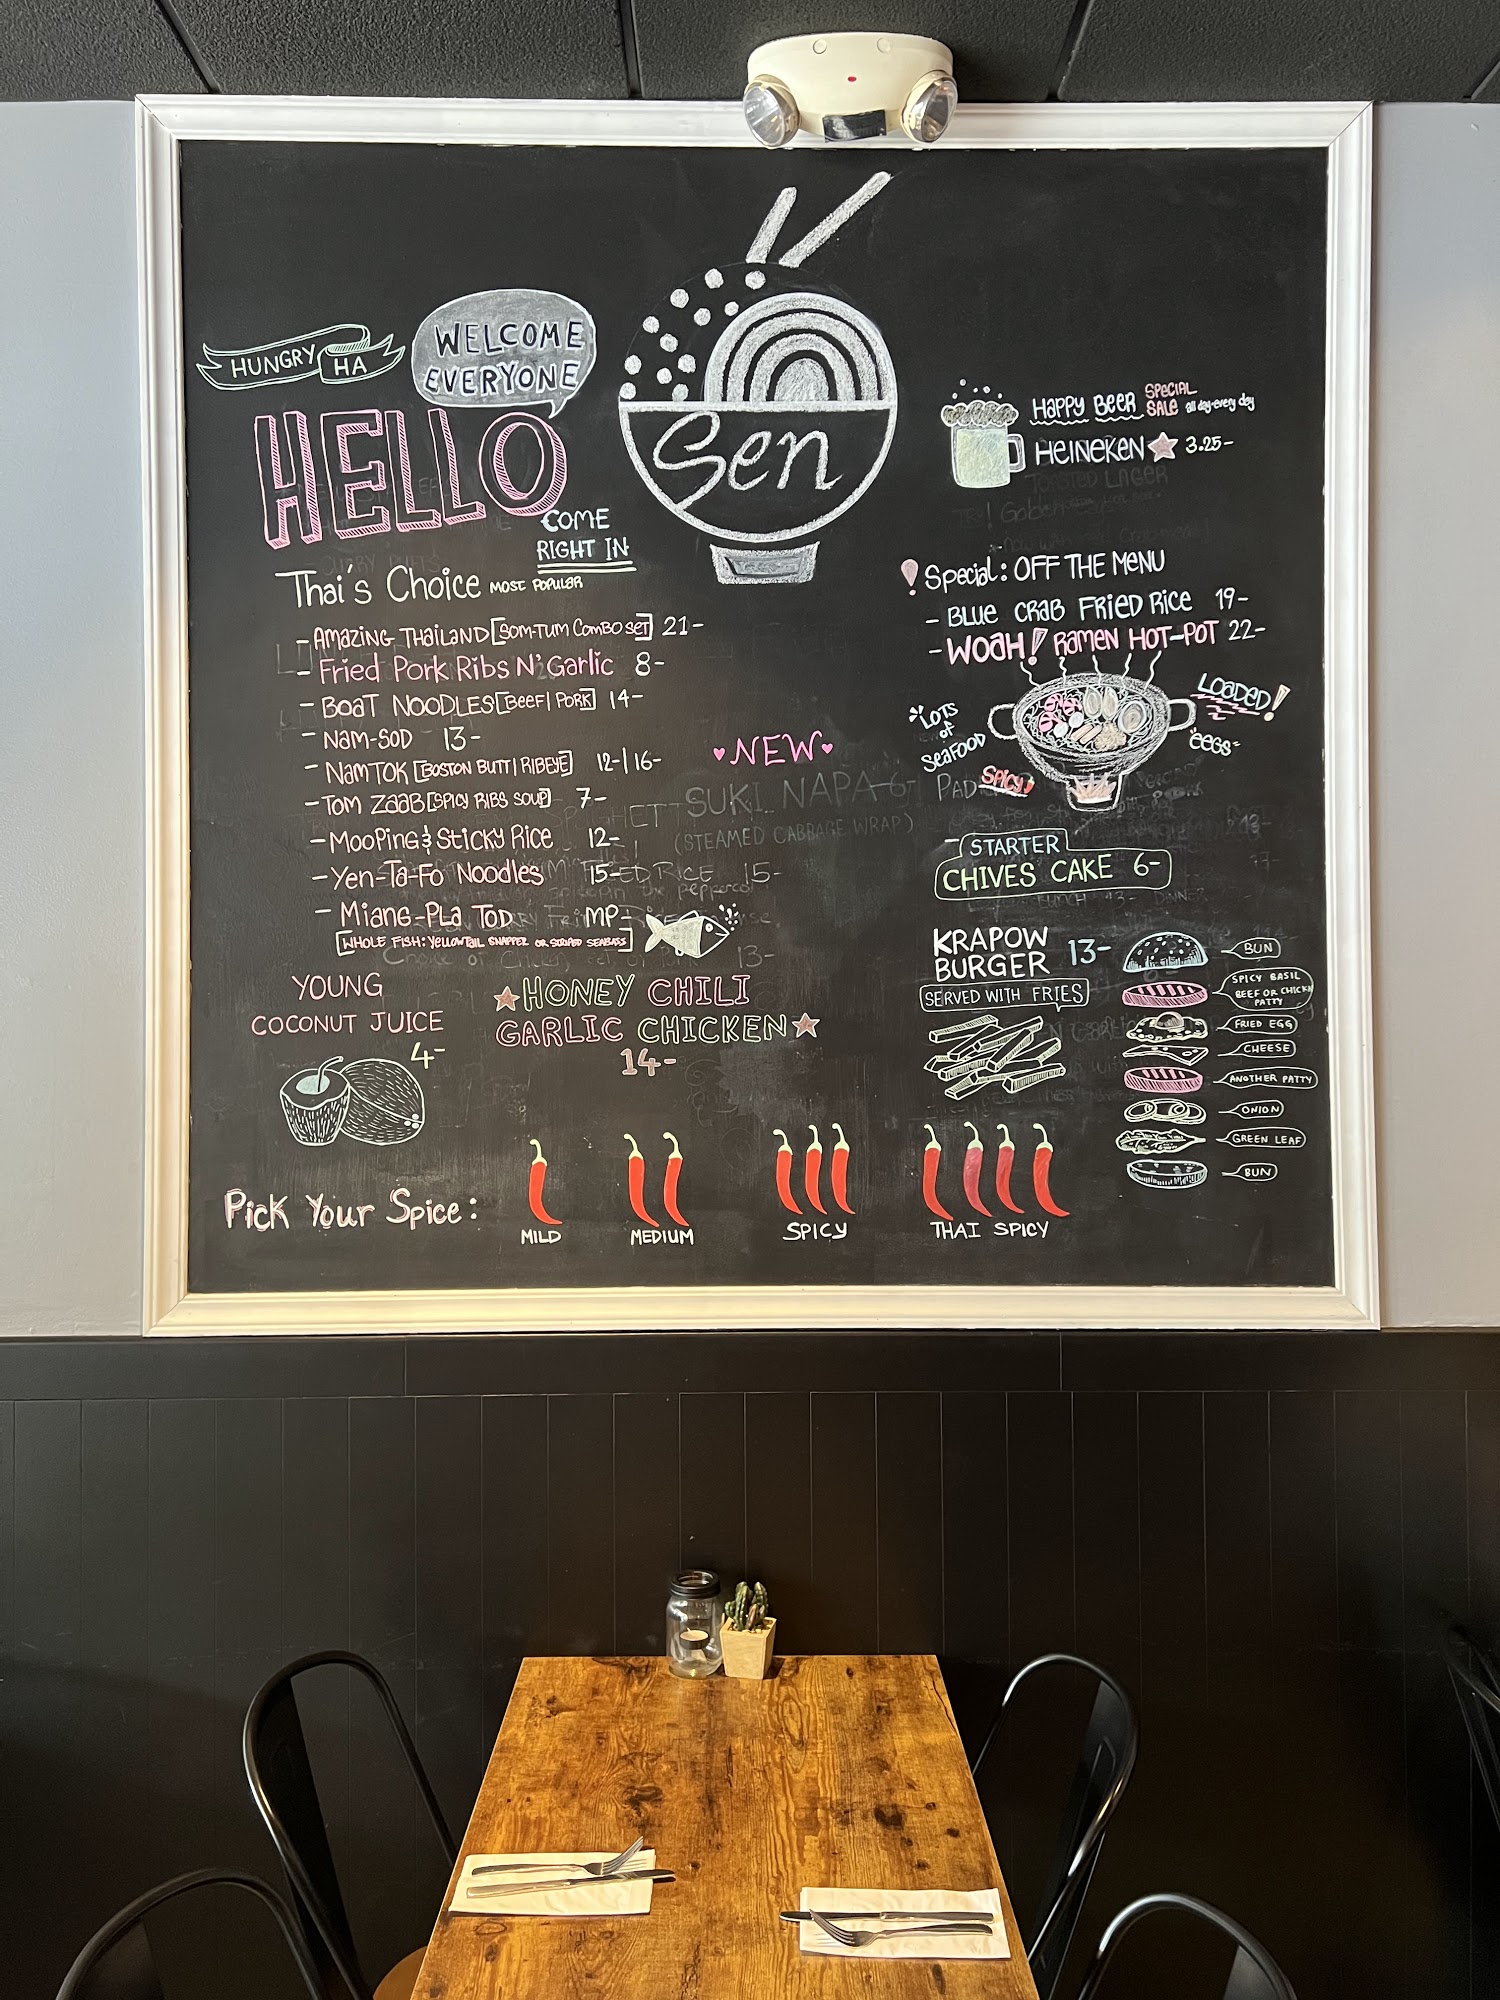 HUNGRY HA
WELCOME
EVERYONE
HELLO
COME
RIGHT IN
Sen
Thai's Choice MOST POPULAR
- AMAZING THAILAND [SOM-TUM COMBO SET] 21-
- Fried Pork Ribs N' Garlic 8-
- BOAT NOODLES [BEEF | PORK] 14-
- NAM-SOD 13-
- NAM TOK [BOSTON BUTT | RIBEYE] 12-|16-
- TOM ZAAB [SPICY RIBS SOUP] 7-
- MooPing & Sticky Rice 12-
- Yen-Ta-Fo Noodles 15-
- Miang-Pla Tod MP-
[WHOLE FISH: YELLOWTAIL SNAPPER OR STRIPED SEABASS]
YOUNG
COCONUT JUICE
4-
NEW
SUKI NAPA 6-
(STEAMED CABBAGE WRAP)
HONEY CHILI
GARLIC CHICKEN
14-
HAPPY BEER SPECIAL SALE all day-every day
HEINEKEN 3.25-
TOASTED LAGER
! Special: OFF THE MENU
- BLUE CRAB FRIED RICE 19-
- WOAH! RAMEN HOT-POT 22-
LOTS
of
SEAFOOD
SPICY
LOADED!
EGGS
- STARTER
CHIVES CAKE 6-
KRAPOW
BURGER 13-
SERVED WITH FRIES
BUN
SPICY BASIL
BEEF OR CHICKN
PATTY
FRIED EGG
CHEESE
ANOTHER PATTY
ONION
GREEN LEAF
BUN
Pick Your Spice:
MILD
MEDIUM
SPICY
THAI SPICY